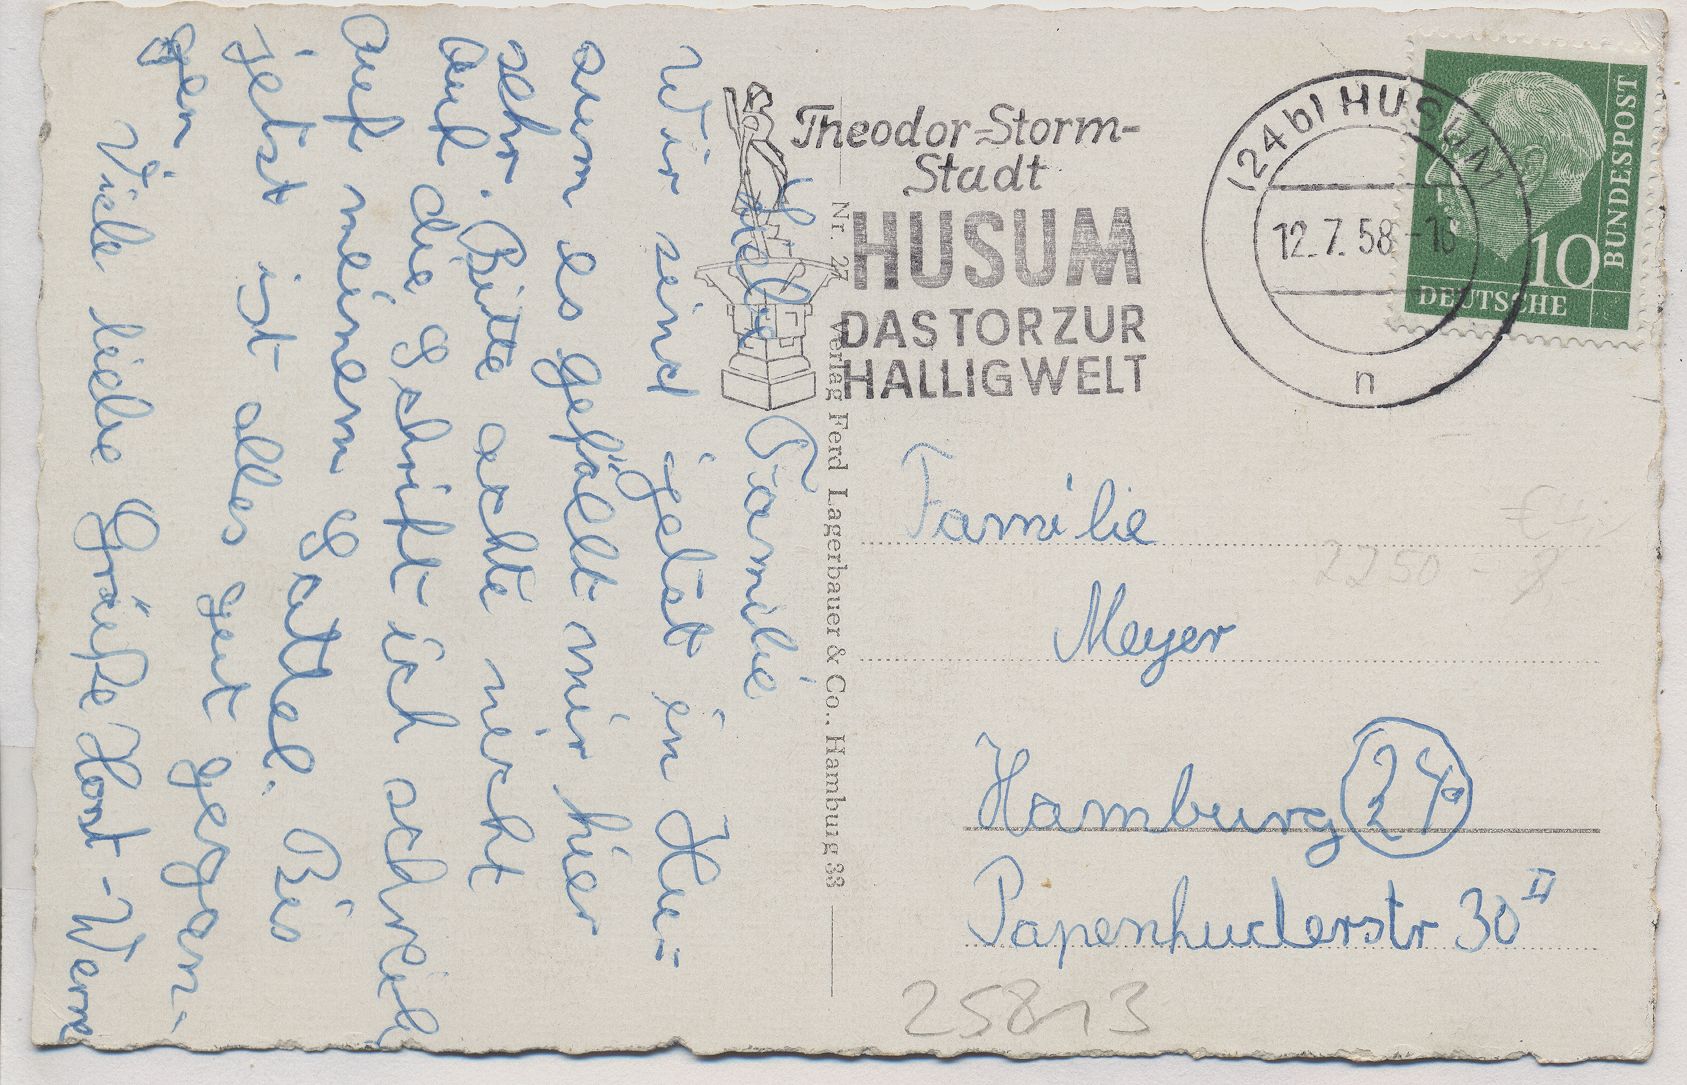 Liebe Familie
Wir sind jetst in Hu=
sum es gefällt mir hier
sehr. Bitte achte nicht
auf die Schrift ich schreib
auf meinem Sattel. Bis
jetst ist alles gut gegan-
gen
Viele liebe Grüße Horst-Werne
Nr. 27 Verlag Ferd Lagerbauer & Co., Hamburg 33
Theodor-Storm-
Stadt
HUSUM
DAS TOR ZUR
HALLIGWELT
(24b) HUSUM
12.7.58-18
n
10
DEUTSCHE
BUNDESPOST
Familie
Meyer
Hamburg 24a
Papenhuderstr 30 II
2250-
25813